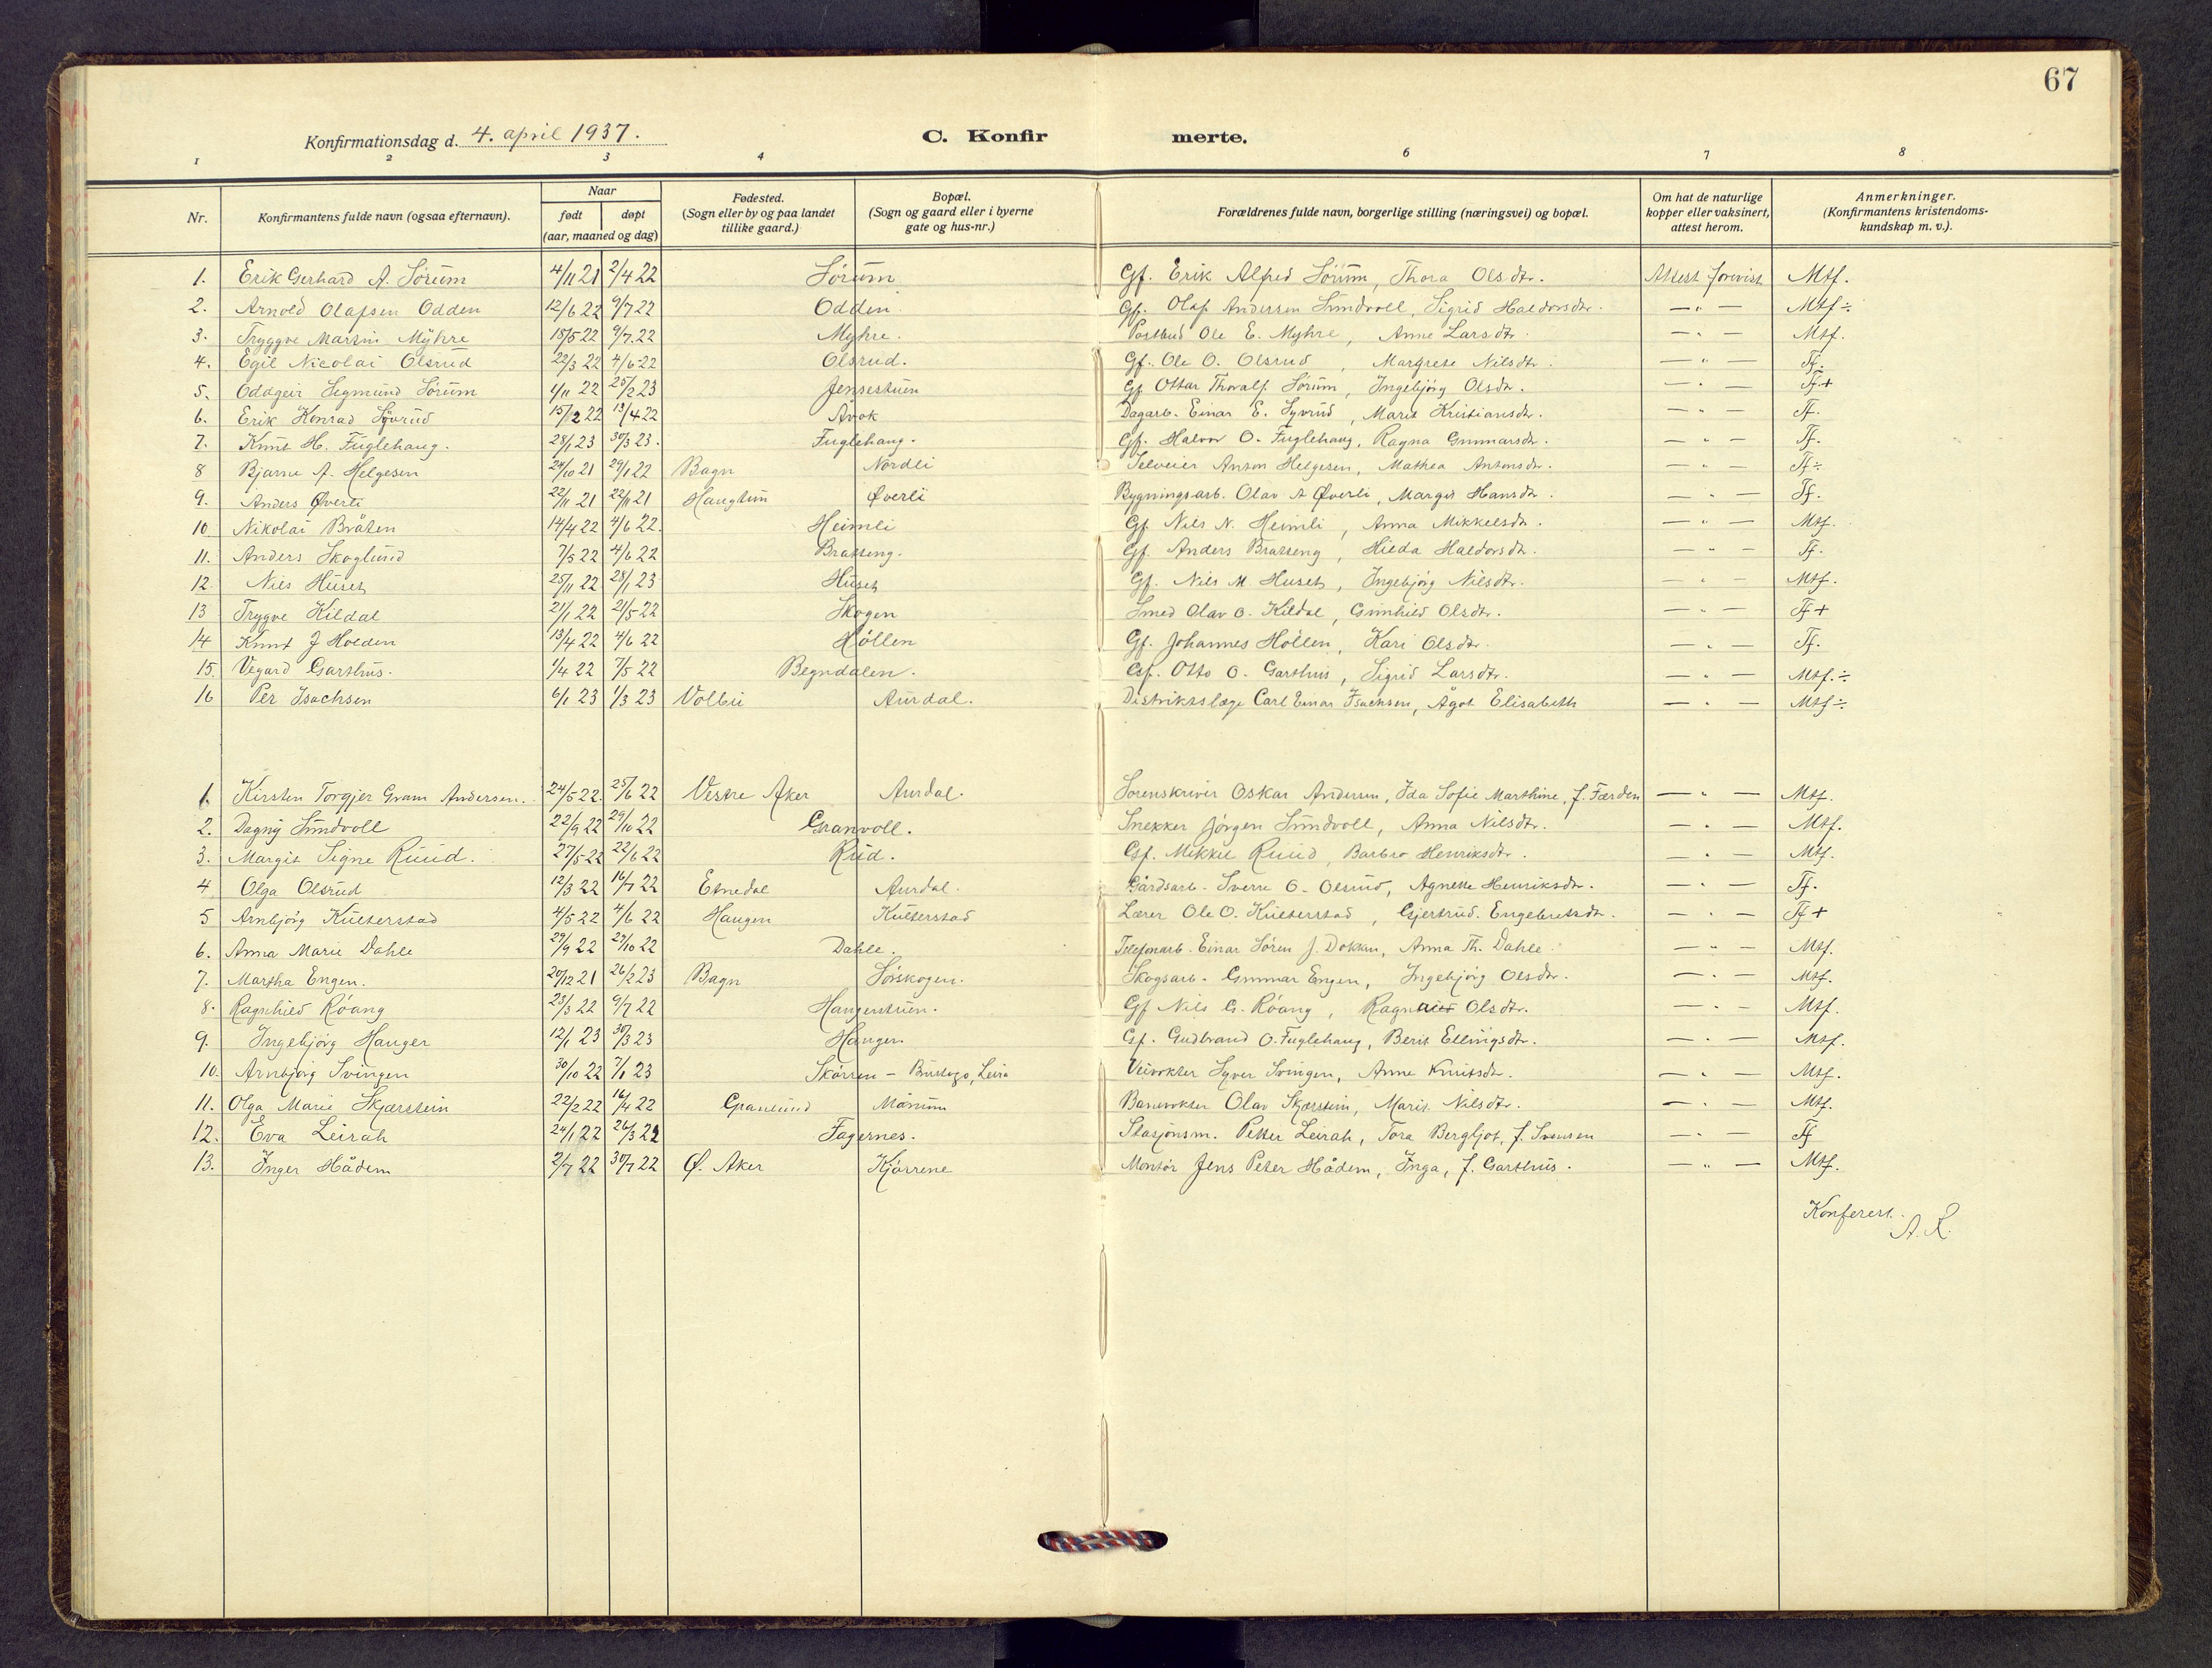 67
Konfirmationsdag d. 4. april 1937. C. Konfirmerte.
1 2 3 4 6 7 8
Nr. Konfirmantens fulde navn (ogsaa efternavn). Naar født døpt (aar, maaned og dag) Fødested. (Sogn eller by og paa landet tillike gaard.) Bopæl. (Sogn og gaard eller i byerne gate og hus-nr.) Forældrenes fulde navn, borgerlige stilling (næringsvei) og bopæl. Om hat de naturlige kopper eller vaksinert, attest herom. Anmerkninger. (Konfirmantens kristendoms-kundskap m. v.).
1. Erik Gerhard A. Sörum 4/11 21 2/4 22 Sörum Gf. Erik Alfred Sörum, Thora Olsdtr. Attest forevist Mtf.
2. Arnold Olafsen Odden 12/6 22 9/7 22 Odden. Gf. Olaf Andersen Sundvoll, Sigrid Haldorsdtr. — " — Mtf ÷
3. Tryggve Martin Myhre 18/5 22 9/7 22 Myhre. Postbud Ole E. Myhre, Anne Larsdtr. — " — Mtf.
4. Egil Nicolai Olsrud 22/3 22 4/6 22 Olsrud. Gf. Ole O. Olsrud, Margrete Nilsdtr. — " — Tf.
5. Oddgeir Segmund Sörum 1/11 22 25/2 23 Jensestuen Gf. Ottar Thoralf Sörum, Ingebjörg Olsdtr. — " — Tf+
6. Erik Konrad Syvrud 15/12 22 13/4 22 Åvok Dagarb. Einar E. Syvrud, Marit Kristiansdtr. — " — Tf.
7. Knut H. Fuglehaug. 28/1 23 30/3 23. Fuglehaug. Gf. Halvor O. Fuglehaug, Ragna Gunnarsdtr. — " — Tf.
8 Bjarne A. Helgesen 24/10 21 29/1 22 Bagn Nordli Selveier Anton Helgesen, Mathea Antonsdtr. — " — Tf ÷
9. Anders Øverli 22/11 21 22/11 21 Haugtun Øverli Bygningsarb. Olav A Øverli, Margit Hansdtr. — " — Tf.
10. Nikolai Bråten 14/4 22 4/6 22. Heimli Gf. Nils N. Heimli, Anna Mikkelsdtr. — " — Mtf.
11. Anders Skoglund 7/5 22 4/6 22 Bratteng. Gf. Anders Bratteng, Hilda Haldorsdtr. — " — Tf.
12. Nils Huset 25/11 22 28/1 23 Huset Gf. Nils M. Huset, Ingebjörg Nilsdtr. — " — Mtf.
13 Trygve Kildal 21/1 22 21/5 22 Skogen Smed Olav O. Kildal, Gunhild Olsdtr. — " — Tf +
14 Knut J Holden 13/4 22 4/6 22 Höllen Gf. Johannes Höllen, Kari Olsdtr. — " — Tf.
15. Vegard Garthus. 1/4 22 7/5 22 Begndalen. Gf. Otto O. Garthus, Sigrid Larsdtr. — " — Mtf. ÷
16 Per Isachsen 6/1 23 1/3 23 Volbu Aurdal. Distriktslæge Carl Einar Isachsen, Ågot Elisabeth — " — Mtf ÷
1. Kirsten Torgjer Gram Andersen. 24/5 22 25/6 22 Vestre Aker Aurdal. Sorenskriver Oskar Andersen, Ida Sofie Marthine, f. Færden — " — Mtf.
2. Dagny Sundvoll 22/9 22 29/10 22 Granvoll. Snekker Jörgen Sundvoll, Anna Nilsdtr. — " — Mtf.
3. Margit Signe Ruud. 27/5 22 22/6 22 Rud. Gf. Mikkel Ruud, Barbro Henriksdtr. — " — Mtf.
4 Olga Olsrud 12/3 22 16/7 22 Etnedal Aurdal. Gårdsarb. Sverre O. Olsrud, Agnethe Henriksdtr. — " — Tf.
5 Arnbjörg Kulterstad 4/5 22 4/6 22 Haugen Kulterstad Lærer Ole O. Kulterstad, Gjertrud Engebretsdtr. — " — Tf +
6. Anna Marie Dahle 29/9 22 29/10 22 Dahle. Telefonarb. Einar Sören J. Dokken, Anna Th. Dahle. — " — Mtf.
7. Martha Engen. 20/12 21 26/2 23 Bagn Sörskogen. Skogsarb. Gunnar Engen, Ingebjörg Olsdtr. — " — Mtf.
8. Ragnhild Röang 23/3 22 9/7 22 Haugerstuen. Gf Nils G. Röang, Ragnhild Olsdtr. — " — Mtf.
9. Ingebjörg Hauger 12/1 23 30/3 23 Hauger. Gf. Gudbrand O. Fuglehaug, Berit Ellingsdtr. — " — Mtf.
10. Arnbjörg Svingen 30/10 22 7/1 23 Skörren – Leira Veivokter Syver Svingen, Anne Knutsdtr. — " — Mtf.
11. Olga Marie Skjærstein 22/2 22 16/4 22 Granlund Mörum Banevokter Olav Skjærstein, Marit Nilsdtr. — " — Mtf.
12. Eva Leirah 24/1 22 26/3 22 Fagernes. Stasjonsm. Petter Leirah, Tora Bergljot, f. Svensen — " — Tf
13. Inger Hådem 2/7 22 30/7 22 Ø. Aker Kjörrene Montör Jens Peter Hådem, Inga, f. Garthus. — " — Mtf.
Konferert.
A. R.